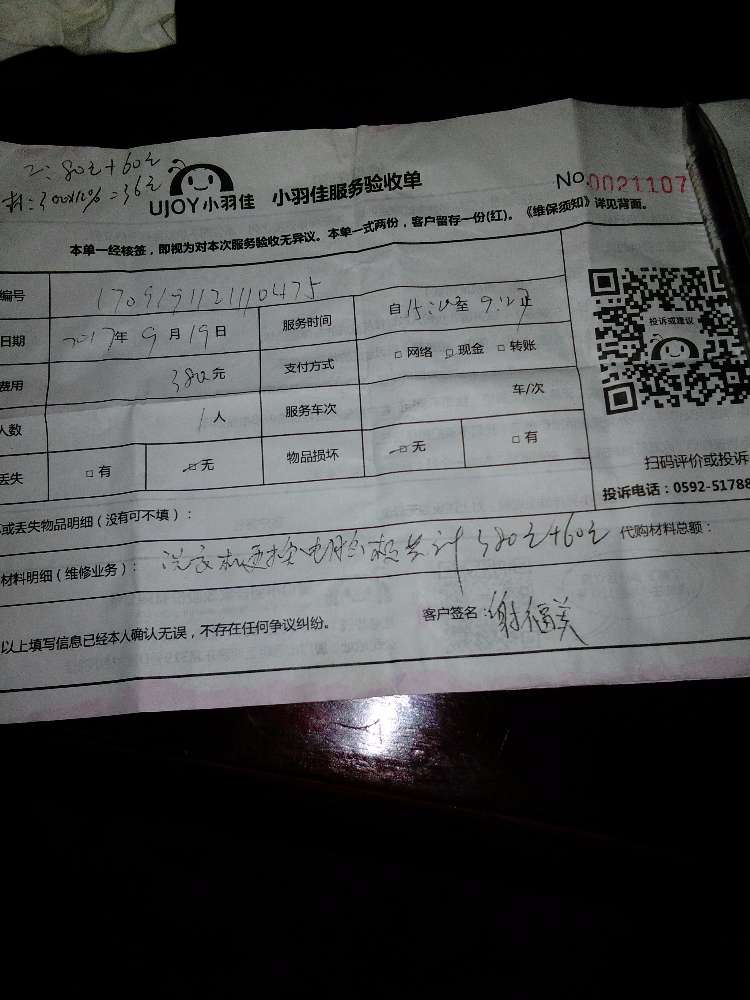 工：80元+60元
材：300×12%=36元
UJOY小羽佳 小羽佳服务验收单 No.0021107
本单一经核签，即视为对本次服务验收无异议。本单一式两份，客户留存一份(红)。《维保须知》详见背面。
编号 1709191121110475
日期 2017年9月19日 服务时间 自 至 止
费用 380元 支付方式 □ 网络 □ 现金 □ 转账
人数 1人 服务车次 车/次
丢失 □ 有 □ 无 物品损坏 □ 无 □ 有
投诉或建议
扫码评价或投诉
投诉电话：0592-51788
或丢失物品明细（没有可不填）：
材料明细（维修业务）： 洗衣机更换电脑板共计380元+60元 代购材料总额：
以上填写信息已经本人确认无误，不存在任何争议纠纷。 客户签名：谢福美